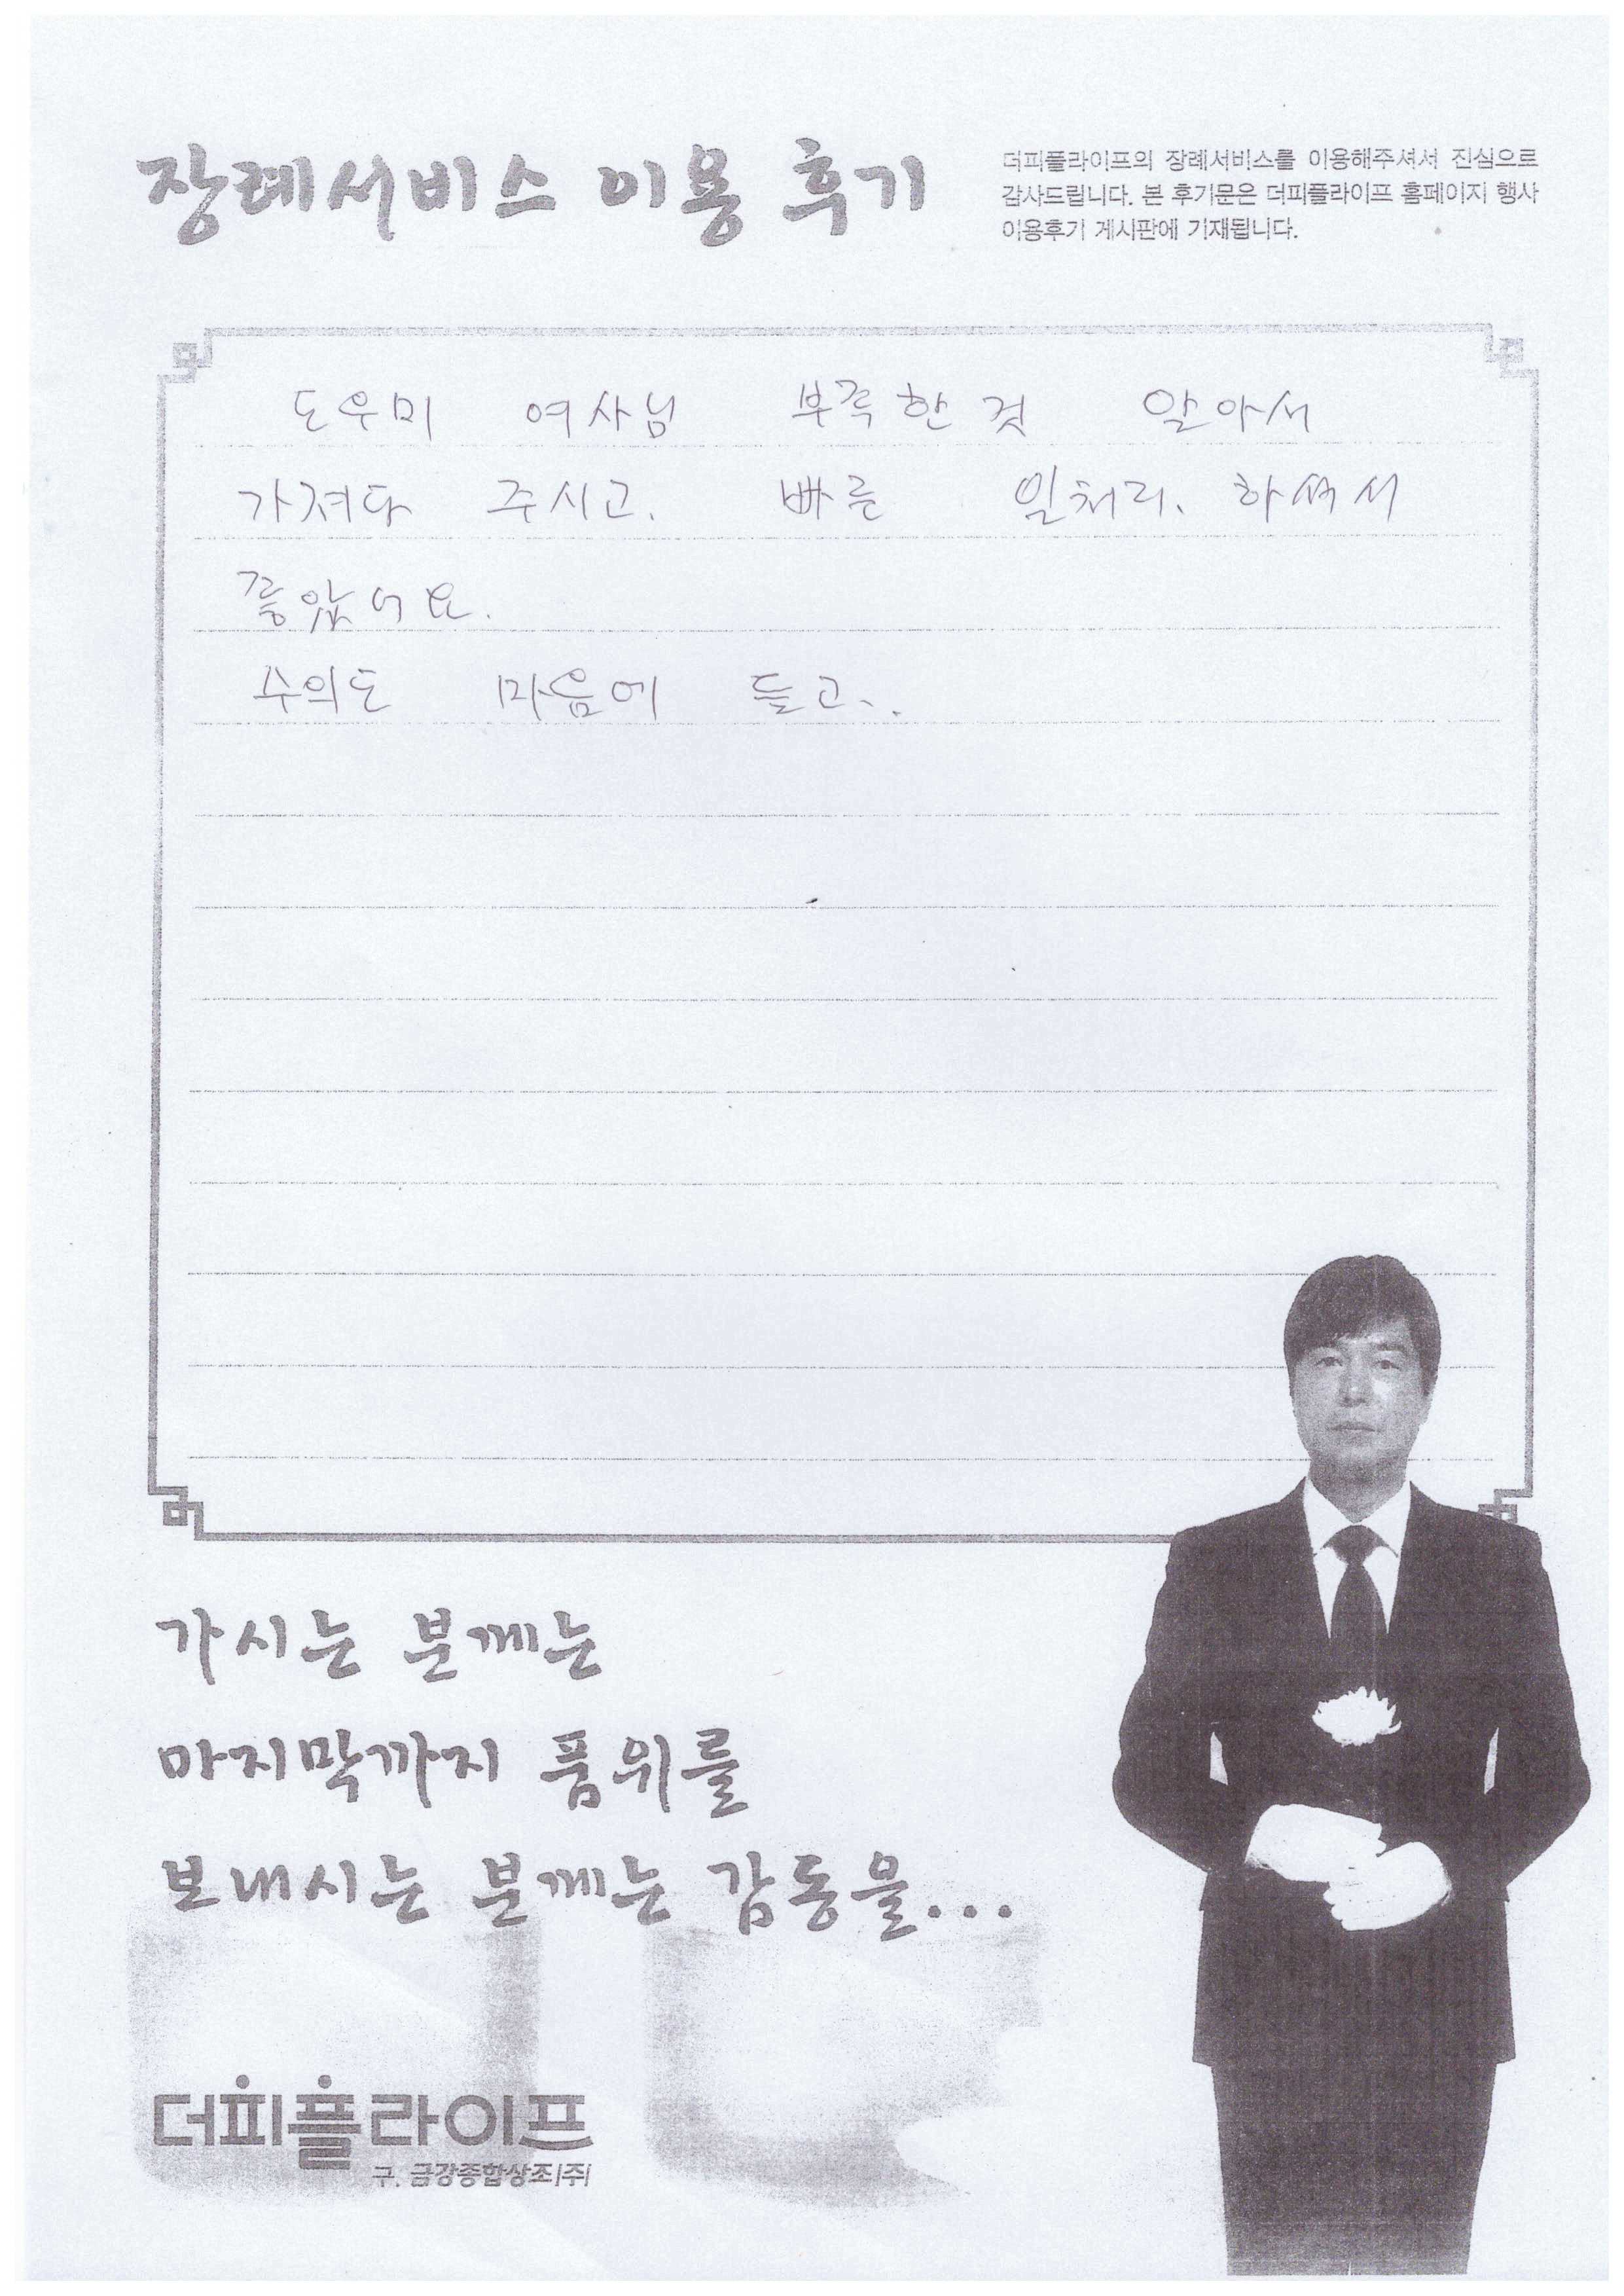 장례서비스 이용 후기
더피플라이프의 장례서비스를 이용해주셔서 진심으로
감사드립니다. 본 후기문은 더피플라이프 홈페이지 행사
이용후기 게시판에 기재됩니다.
도우미 여사님 부족한것 알아서
가져다 주시고. 빠른 일처리. 하셔서
좋았어요.
수의도 마음에 들고..
가시는 분께는
마지막까지 품위를
보내시는 분께는 감동을...
더피플라이프
구. 금강종합상조(주)